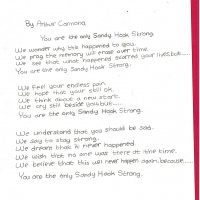 By Arthur Carmona
You are the only Sandy Hook Strong.
We wonder why this happened to you.
We pray the memory will erase over time.
We see that what happened scarred your lives but.....
You are the only Sandy Hook Strong.
We feel your endless pain.
We hope that your still ok.
We think about a new start.
We cry still beside you but.....
You are the only Sandy Hook Strong.
We understand that you should be sad.
We say to stay strong.
We dream that it never happened.
We wish that no one was there at the time.
We believe that this will never happen again because.....
You are the only Sandy Hook Strong.